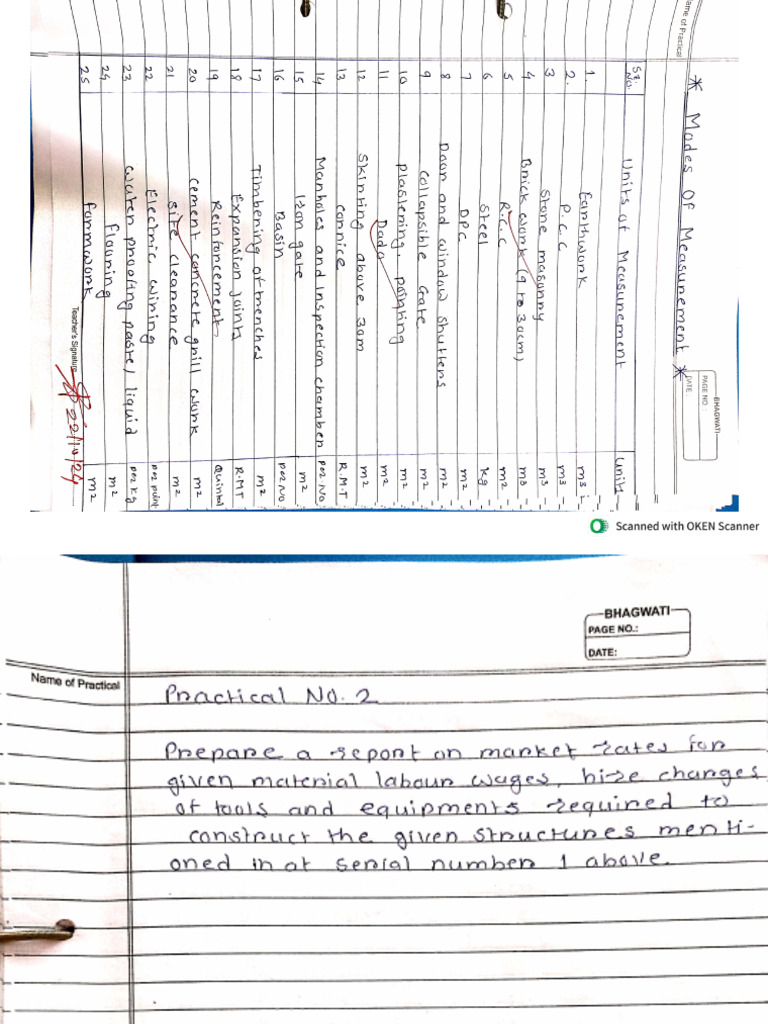 Name of Practical
BHAGWATI
PAGE NO.:
DATE:
* Modes Of Measurement *
Sr. No. Units of Measurement Units
1. Earthwork m3
2. P.C.C m3
3 Stone masonry m3
4 Brick work (9 to 30cm) m3
5 R.C.C m2
6 Steel kg
7 DPC m2
8 Door and window shutters m2
9 Collapsible Gate m2
10 Plastering, pointing m2
11 Dado m2
12 Skirting above 30m m2
13 Cornice R.M.T
14 Manholes and Inspection chamber per No.
15 Iron gate m2
16 Basin per No.
17 Timbering of trenches m2
18 Expansion joints R.MT
19 Reinforcement Quintal
20 cement concrete grill work m2
21 site clearance m2
22 Electric wiring per point
23 water proofing paste/ liquid per kg
24 flooring m2
25 formwork m2
Teacher's Signature
22/10/24
Scanned with OKEN Scanner
BHAGWATI
PAGE NO.:
DATE:
Name of Practical
Practical No. 2
Prepare a report on market rates for
given material labour wages, hire changes
of tools and equipments required to
construct the given structures menti-
oned in at serial number 1 above.